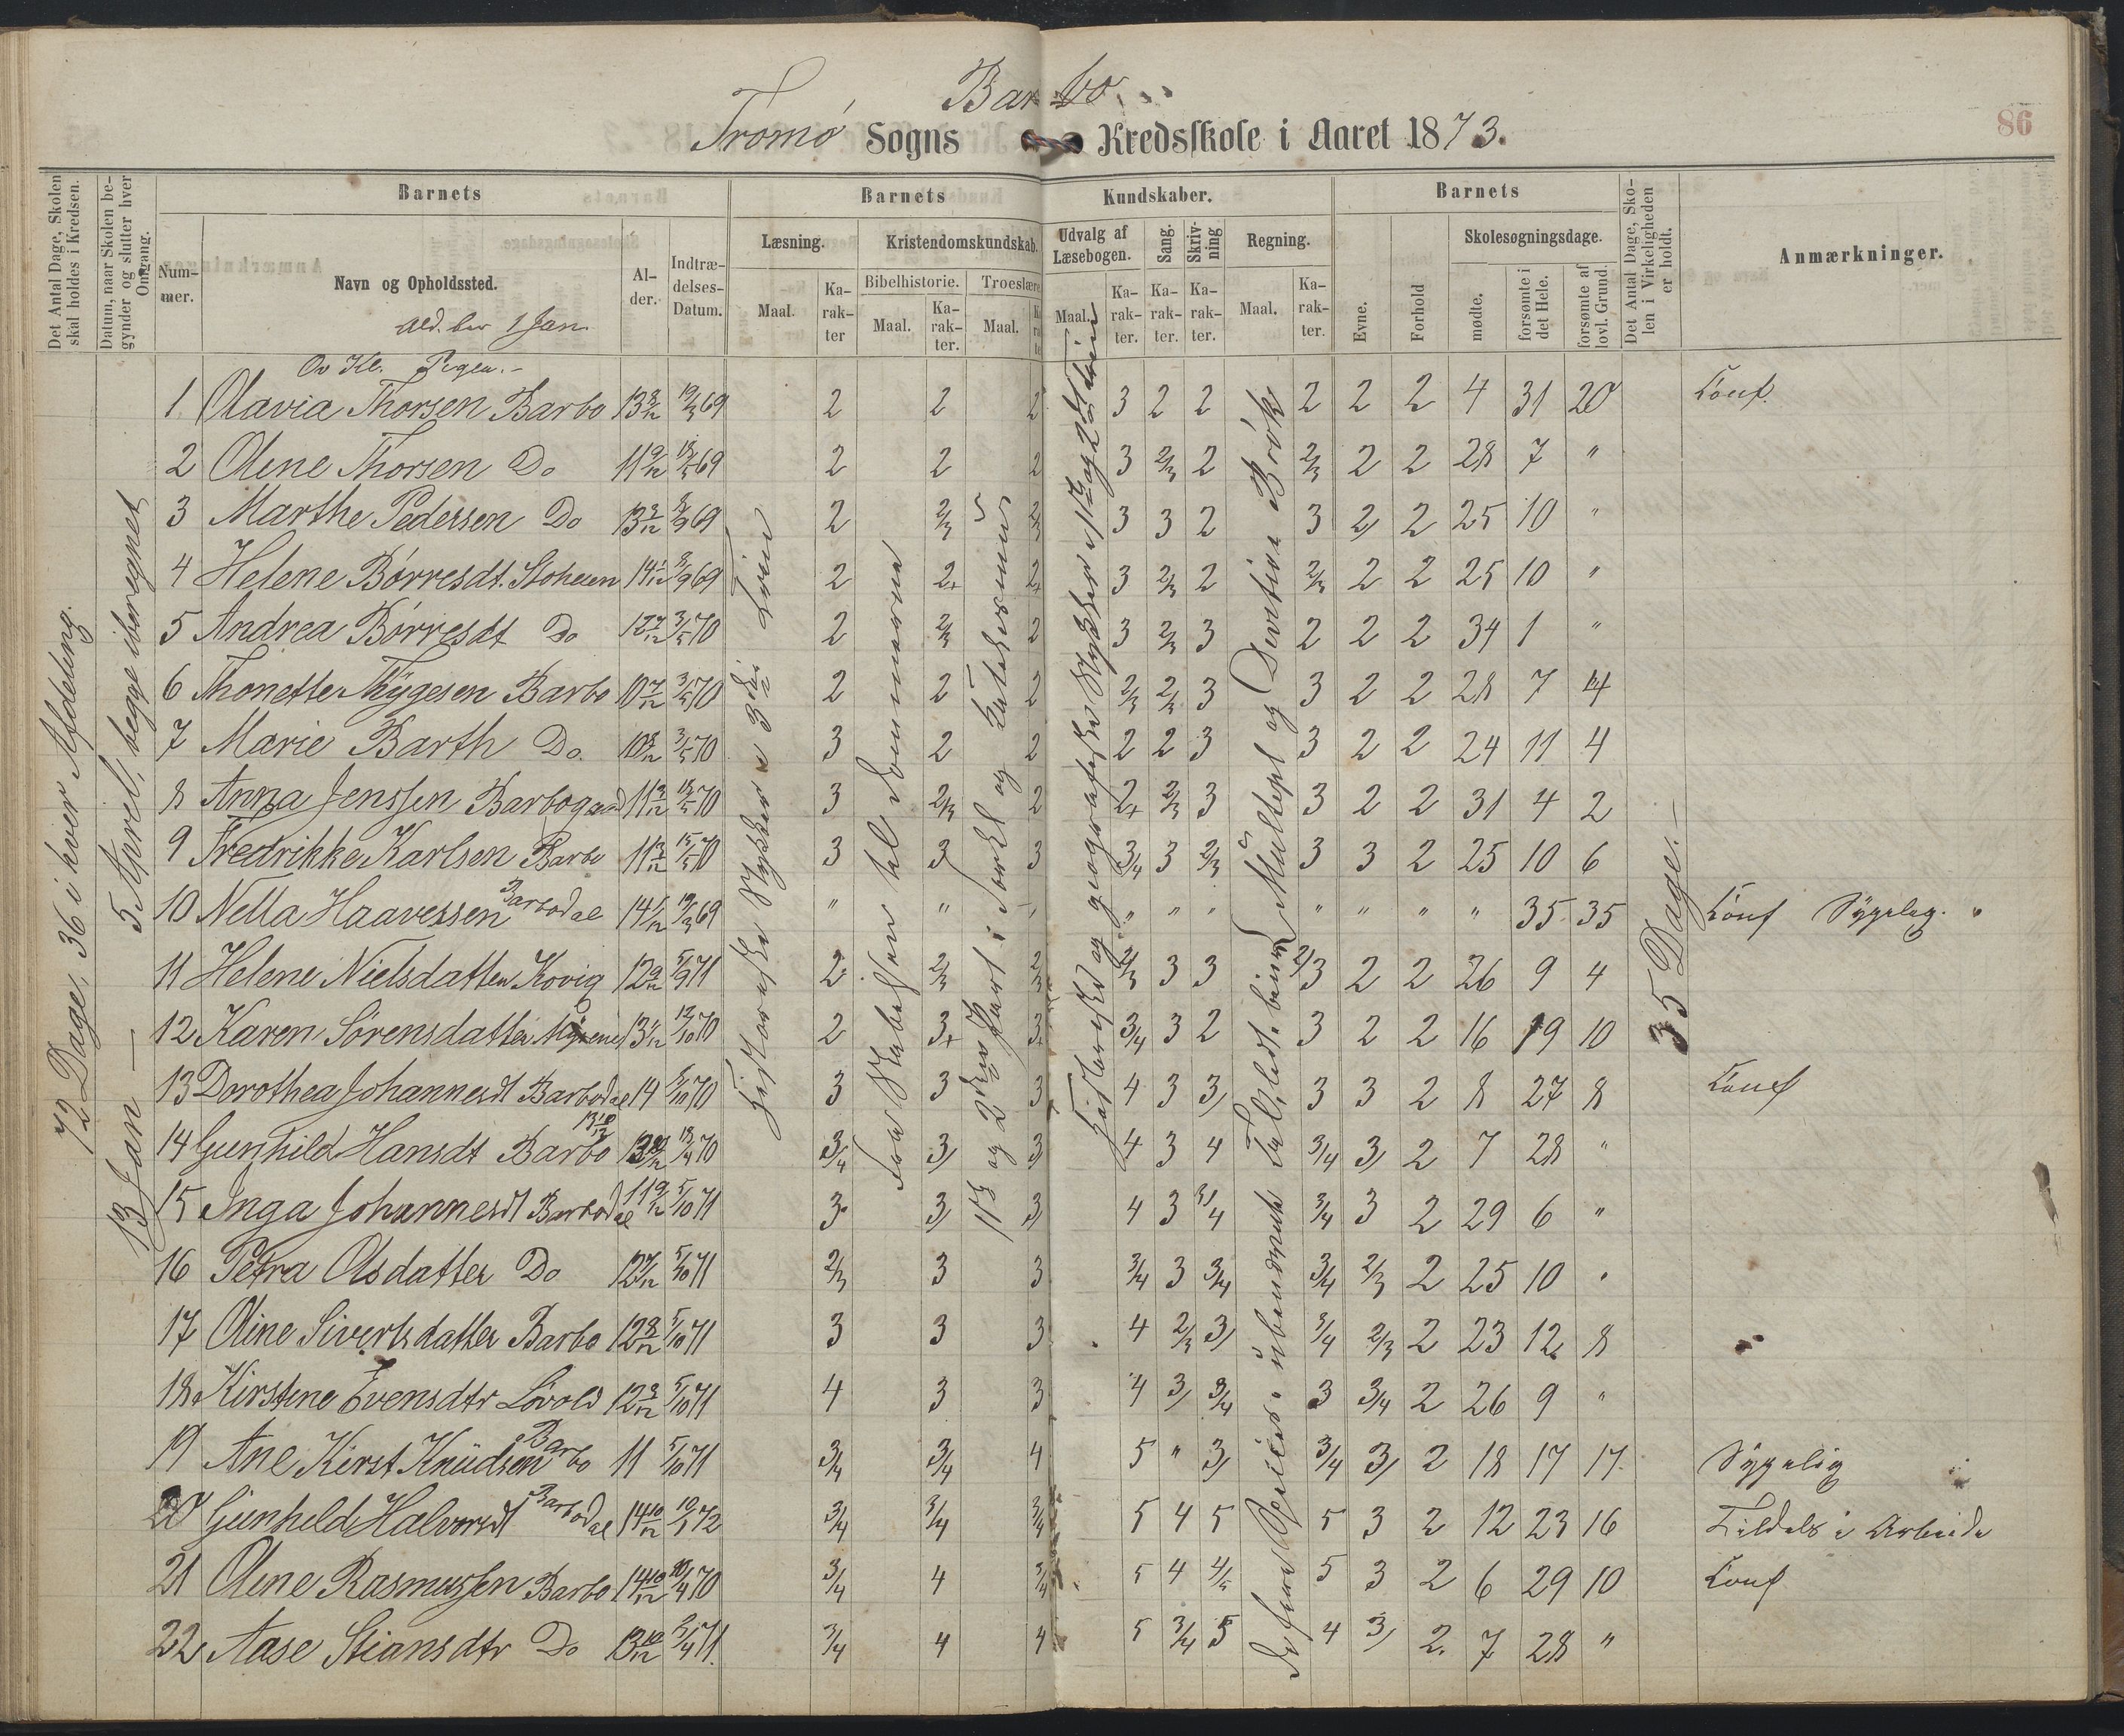 Barbo
Tromø Sogns Kredsskole i Aaret 1873.
86
Det Antal Dage, Skolen skal holdes i Kredsen.
Datum, naar Skolen begynder og slutter hver Omgang.
Barnets
Barnets Kundskaber.
Barnets
Det Antal Dage, Skolen i Virkeligheden er holdt.
Anmærkninger.
Nummer.
Navn og Opholdssted.
Ald. ber 1 Jan.
Alder.
Indtrædelses-Datum.
Læsning. Kristendomskundskab. Udvalg af Læsebogen. Sang. Skrivning Regning.
Bibelhistorie. Troeslære
Maal. Karakter Maal. Karakter. Maal. Maal. Karakter. Karakter. Karakter. Maal. Karakter.
Evne. Forhold Skolesøgningsdage.
mødte. forsømte i det Hele. forsømte af lovl. Grund.
72 Dage, 36 i hver Afdeling.
13 Jan — 5 April, begge iberegnet
Ov Kl. Pigen.
1 Olavia Thorsen Barbo 13 8/12 19/3 69 2 2 2 3 2 2 2 2 2 4 31 20 Conf.
2 Olene Thorsen Do 11 9/12 69 2 2 2 3 2/3 2 2/3 2 2 28 7 "
3 Marthe Pedersen Do 69 2 2/3 2/3 3 3 2 3 2 2 25 10 "
4 Helene Børresdt. 14 1/12 69 2 2+ 2+ 3 2/3 2 2/3 2 2 25 10 "
5 Andrea Børresdt Do 3/5 70 2 2/3 2 3 2/3 3 2 2 2 34 1 "
6 Thonette Thygesen Barbo 10 7/12 3/5 70 2 2 2 2/3 2/3 3 3 2 2 28 7 4
7 Marie Barth Do. 10 8/12 3/5 70 3 2 2 2 2 3 3 2 2 24 11 4
8 Anna Jenssen Barbogaard 70 3 2/3 2 2+ 2/3 3 3 2 2 31 4 2
9 Fredrikke Karlsen Barbo 15/5 70 3 3 3 3/4 3 2/3 3 3 2 25 10 6
10 Nella Haavessen Barbodal 14 1/12 19/3 69 " " " " " " " " " " 35 35 Conf Sygelig.
11 Helene Nielsdatter Kovig 12 9/12 5/9 71 2 2/3 2/3 2/3 3 3 2/3 2 2 26 9 4
12 Karen Sørensdatter 13 1/12 70 2 3+ 3+ 3/4 3 2 3 2 2 16 19 10
13 Dorothea Johannesdt Barbodal 14 70 3 3 3 4 3 3 3 3 2 8 27 8 Conf
14 Gunhild Hansdt Barbo 13 10/12 70 3/4 3 3 4 3 4 3/4 3 2 7 28 "
15 Inga Johannesdt Barbodal 11 9/12 5/10 71 3 3 3 4 3 3/4 3/4 3 2 29 6 "
16 Petra Olsdatter Do 12 7/12 5/10 71 2/3 3 3 3/4 3 3/4 3/4 2/3 2 25 10 "
17 Oline Sivertsdatter Barbo 12 8/12 5/10 71 3 3 3 4 2/3 3 3/4 2/3 2 23 12 8
18 Kirstine Evensdtr Løvold 5/10 71 4 3 3 4 3 3/4 3 3/4 2 26 9 "
19 Ane Kirst Knudsen Barbo 11 5/10 71 3/4 3/4 4 5 " 3 3/4 3 2 18 17 17 Sygelig
20 Gunheld Halvorsdt Barbodal 14 10/12 72 3/4 3/4 3/4 5 4 5 5 3 2 12 23 16 Tildels i Arbeide
21 Olene Rasmussen Barbo 14 10/12 70 3/4 4 3/4 5 4 4/5 5 3 2 6 29 10 Conf
22 Aase Stiansdtr Do 13 10/12 71 3/4 4 4 5 3/4 5 4 3 2 7 28 "
Historiske Stykker i 3die Trin
Fra Skabelsen til Dommerne
1ste og 2den Part i Forkl og Katekismus
Historisk og geografiske Stykker i 1ste og 2det Trin
De fire Regninger i ubenævnte Tal, ledt. benævn Multipl og Division i Brøk
35 Dage.